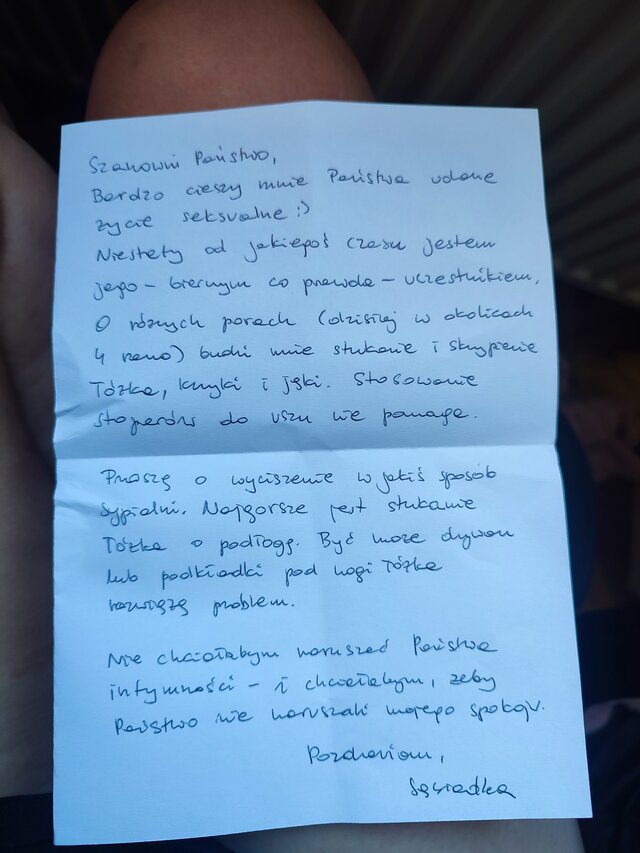 Szanowni Państwo,
Bardzo cieszy mnie Państwa udane
życie seksualne :)
Niestety od jakiegoś czasu jestem
jego - biernym co prawda - uczestnikiem.
O różnych porach (dzisiaj w okolicach
4 rano) budzi mnie stukanie i skrzypienie
łóżka, krzyki i jęki. Stosowanie
stoperów do uszu nie pomaga.
Proszę o wyciszenie w jakiś sposób
sypialni. Najgorsze jest stukanie
łóżka o podłogę. Być może dywan
lub podkładki pod nogi łóżka
rozwiążą problem.
Nie chciałabym naruszać Państwa
intymności - i chciałabym, żeby
Państwo nie naruszali mojego spokoju.
Pozdrawiam,
Sąsiadka